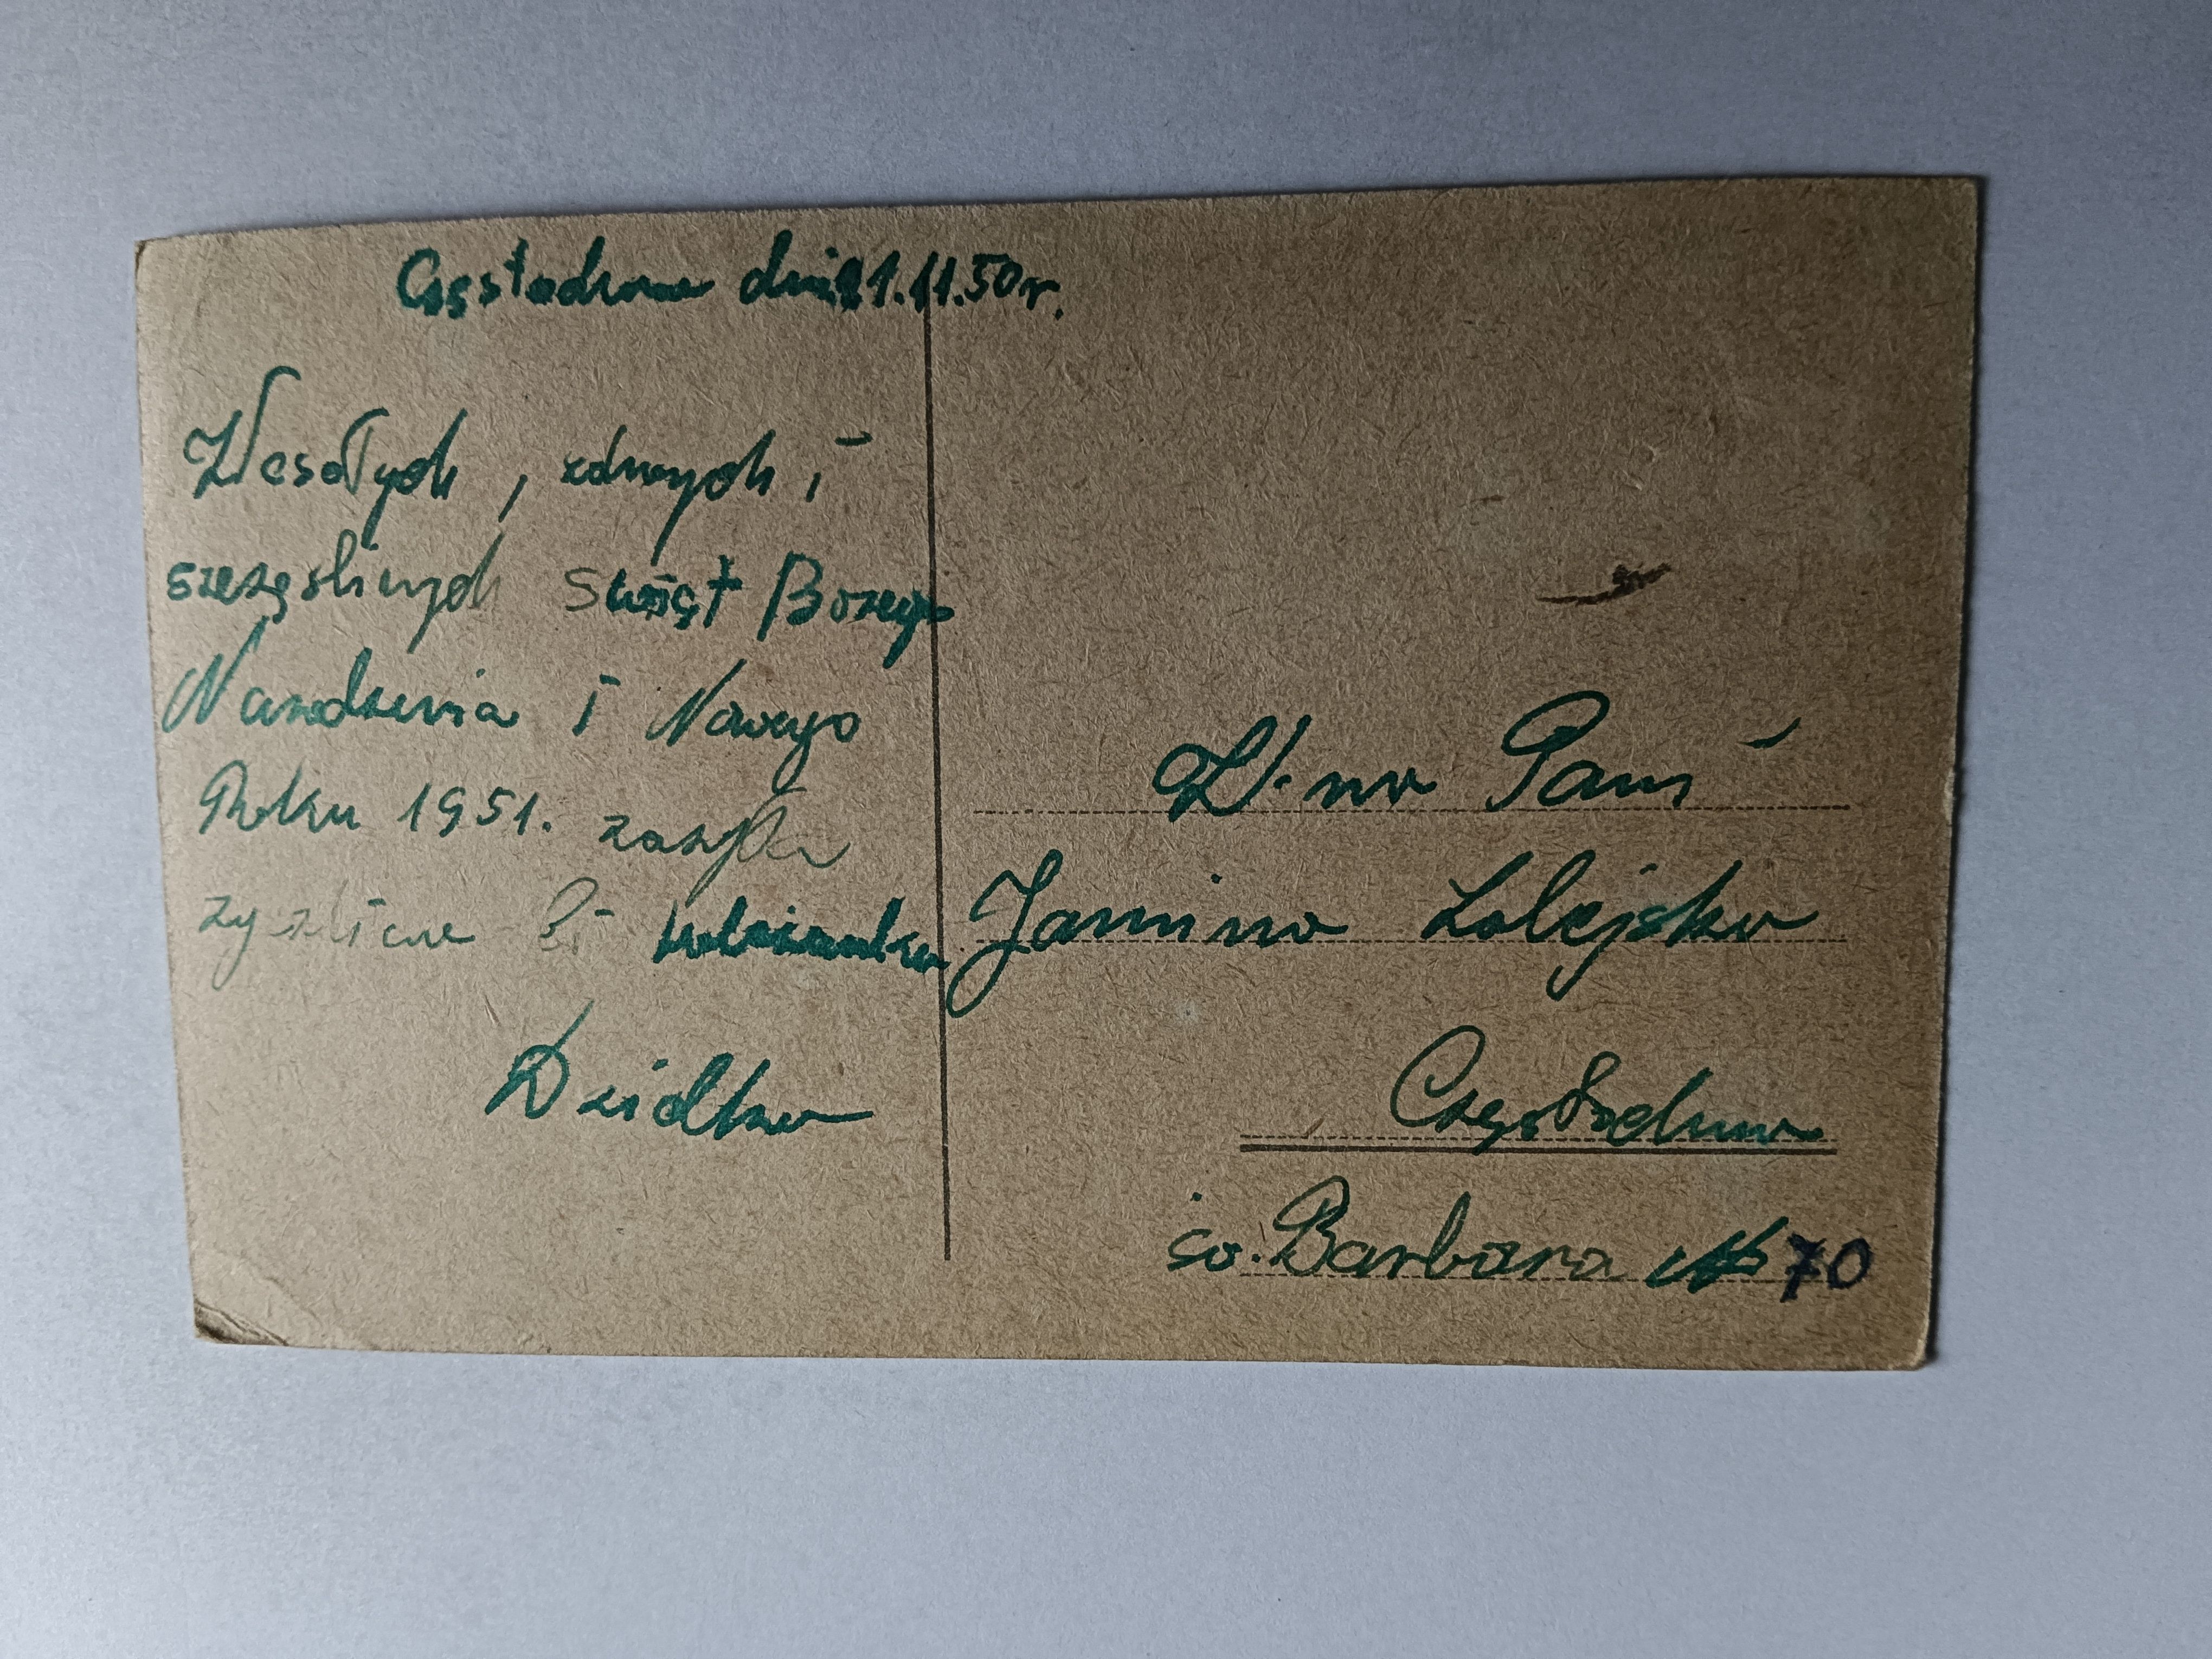 Częstochowa dnia 21.11.50r.
Wesołych, zdrowych i
szczęśliwych Swiąt Bozego
Narodzenia i Nowego
Roku 1951. zasyła
zyczliwa Ci kolezanka
Dzidka
W.na Pani
Janina Lolejska
Częstochowa
św. Barbara № 70